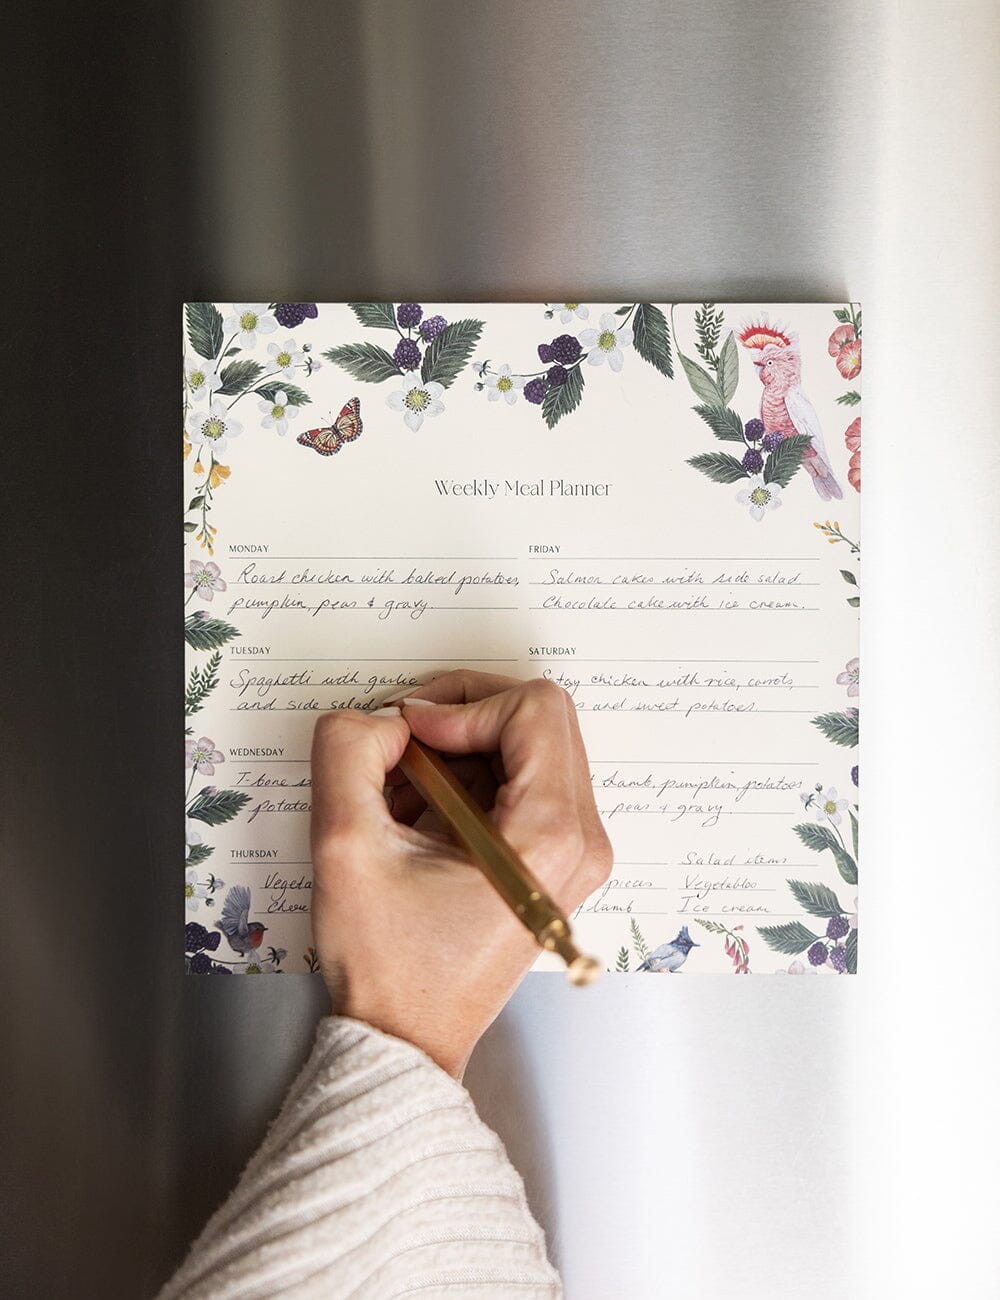 Weekly Meal Planner
MONDAY
Roast chicken with baked potatoes,
pumpkin, peas & gravy.
TUESDAY
Spaghetti with garlic
and side salad.
WEDNESDAY
T-bone
potato
THURSDAY
Vegeta
FRIDAY
Salmon cakes with side salad.
Chocolate cake with ice cream.
SATURDAY
chicken with rice, carrots,
and sweet potatoes.
lamb, pumpkin, potatoes
, peas & gravy.
Salad items
pieces Vegetables
lamb Ice cream